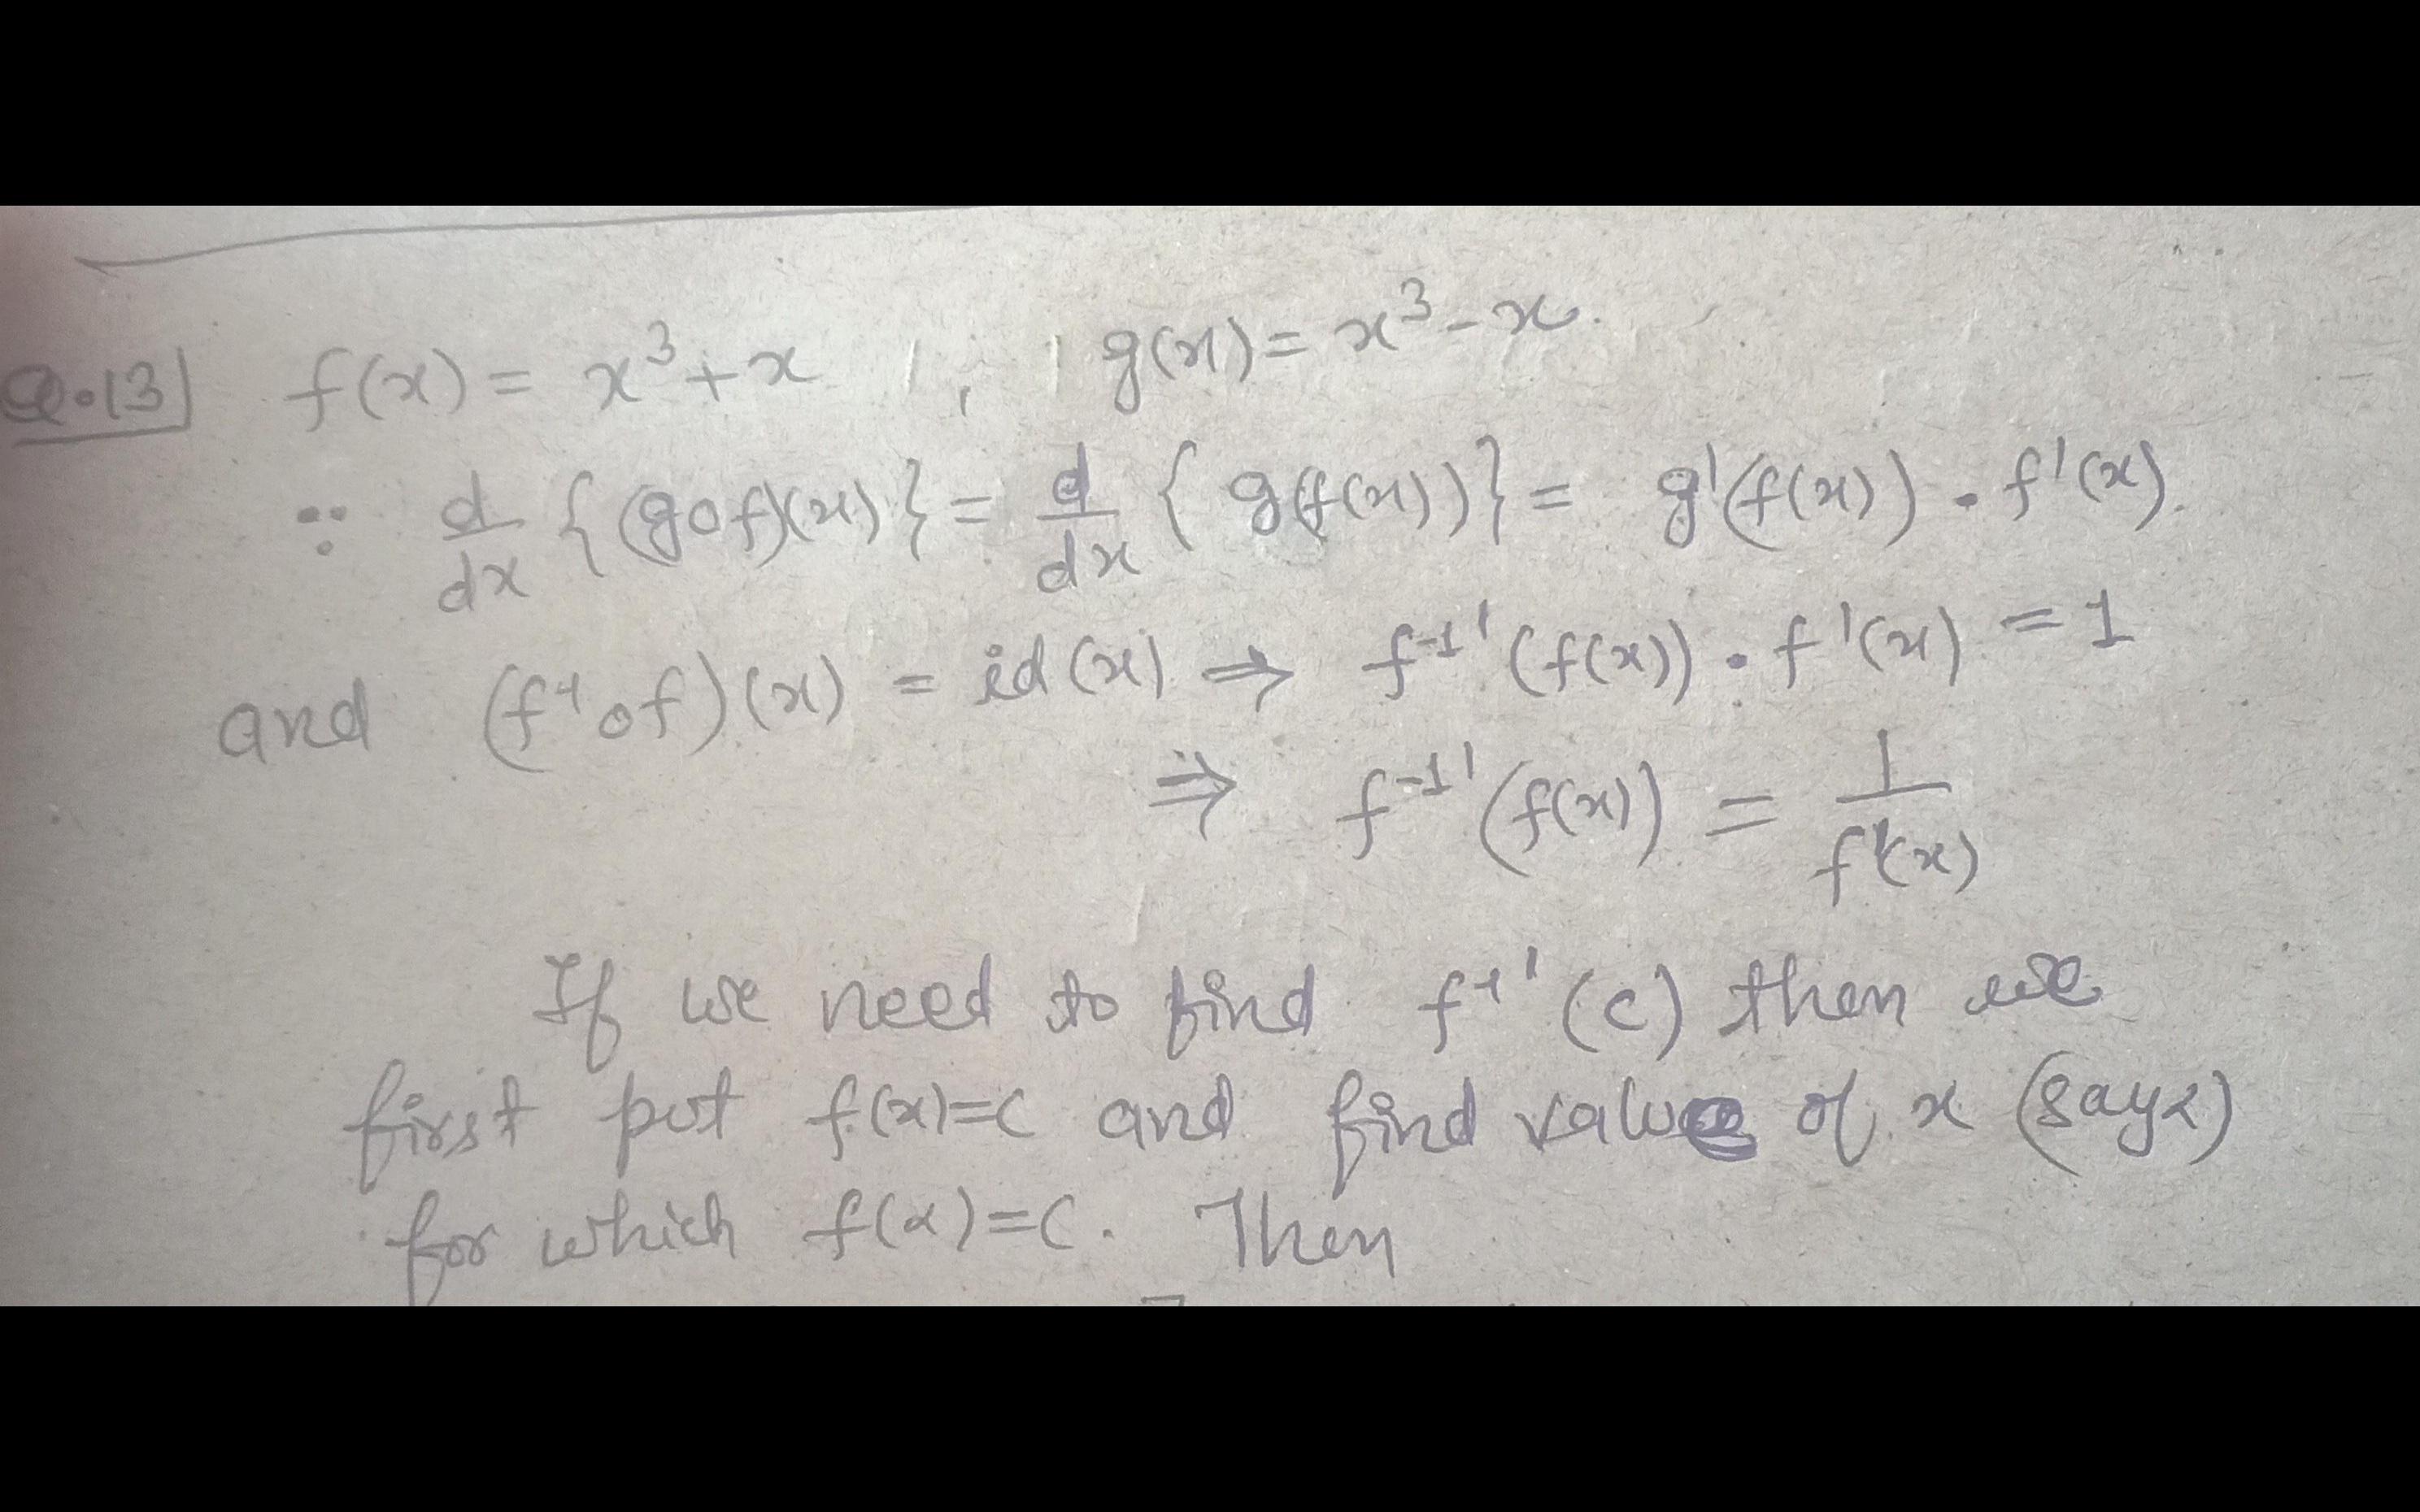 Q.13] f(x) = x³+x , g(x) = x³-x.
∵ d/dx {(gof)(x)} = d/dx { g(f(x))} = g'(f(x)) • f'(x).
and (f⁻¹of)(x) = id(x) ⇒ f⁻¹'(f(x)) • f'(x) = 1
⇒ f⁻¹'(f(x)) = 1/f'(x)
If we need to find f⁻¹'(c) then we
first put f(x)=c and find value of x (say α)
for which f(α)=c. Then